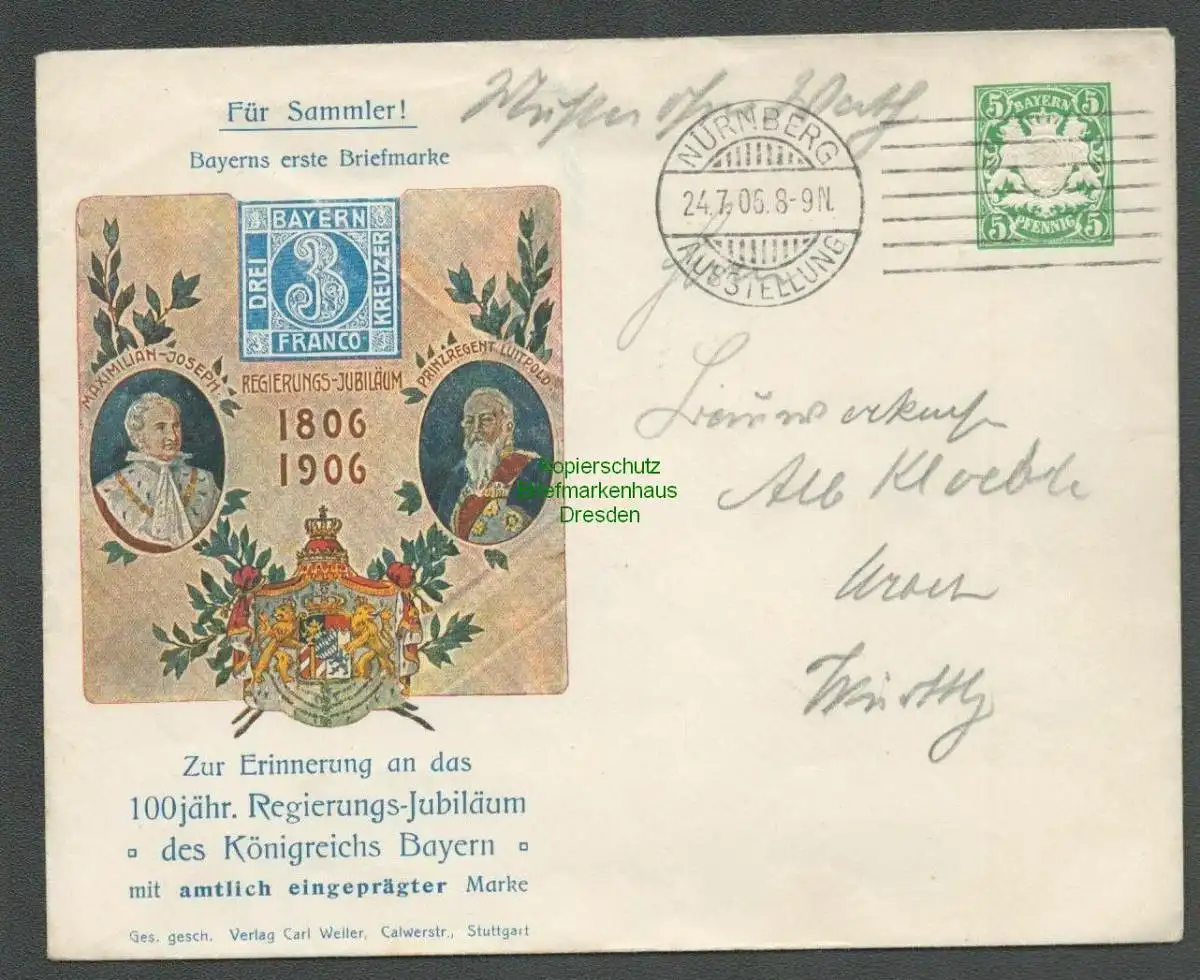 Für Sammler!
Bayerns erste Briefmarke
BAYERN
DREI
3
KREUZER
FRANCO
MAXIMILIAN-JOSEPH
PRINZREGENT LUITPOLD
REGIERUNGS-JUBILÄUM
1806
1906
Zur Erinnerung an das
100jähr. Regierungs-Jubiläum
des Königreichs Bayern
mit amtlich eingeprägter Marke
Ges. gesch. Verlag Carl Weiler, Calwerstr., Stuttgart
Muster ohne Werth
NÜRNBERG
24.7.06.8-9N.
AUSSTELLUNG
5 BAYERN 5
5 PFENNIG 5
Kopierschutz
Briefmarkenhaus
Dresden
Alb
Urach
Württbg